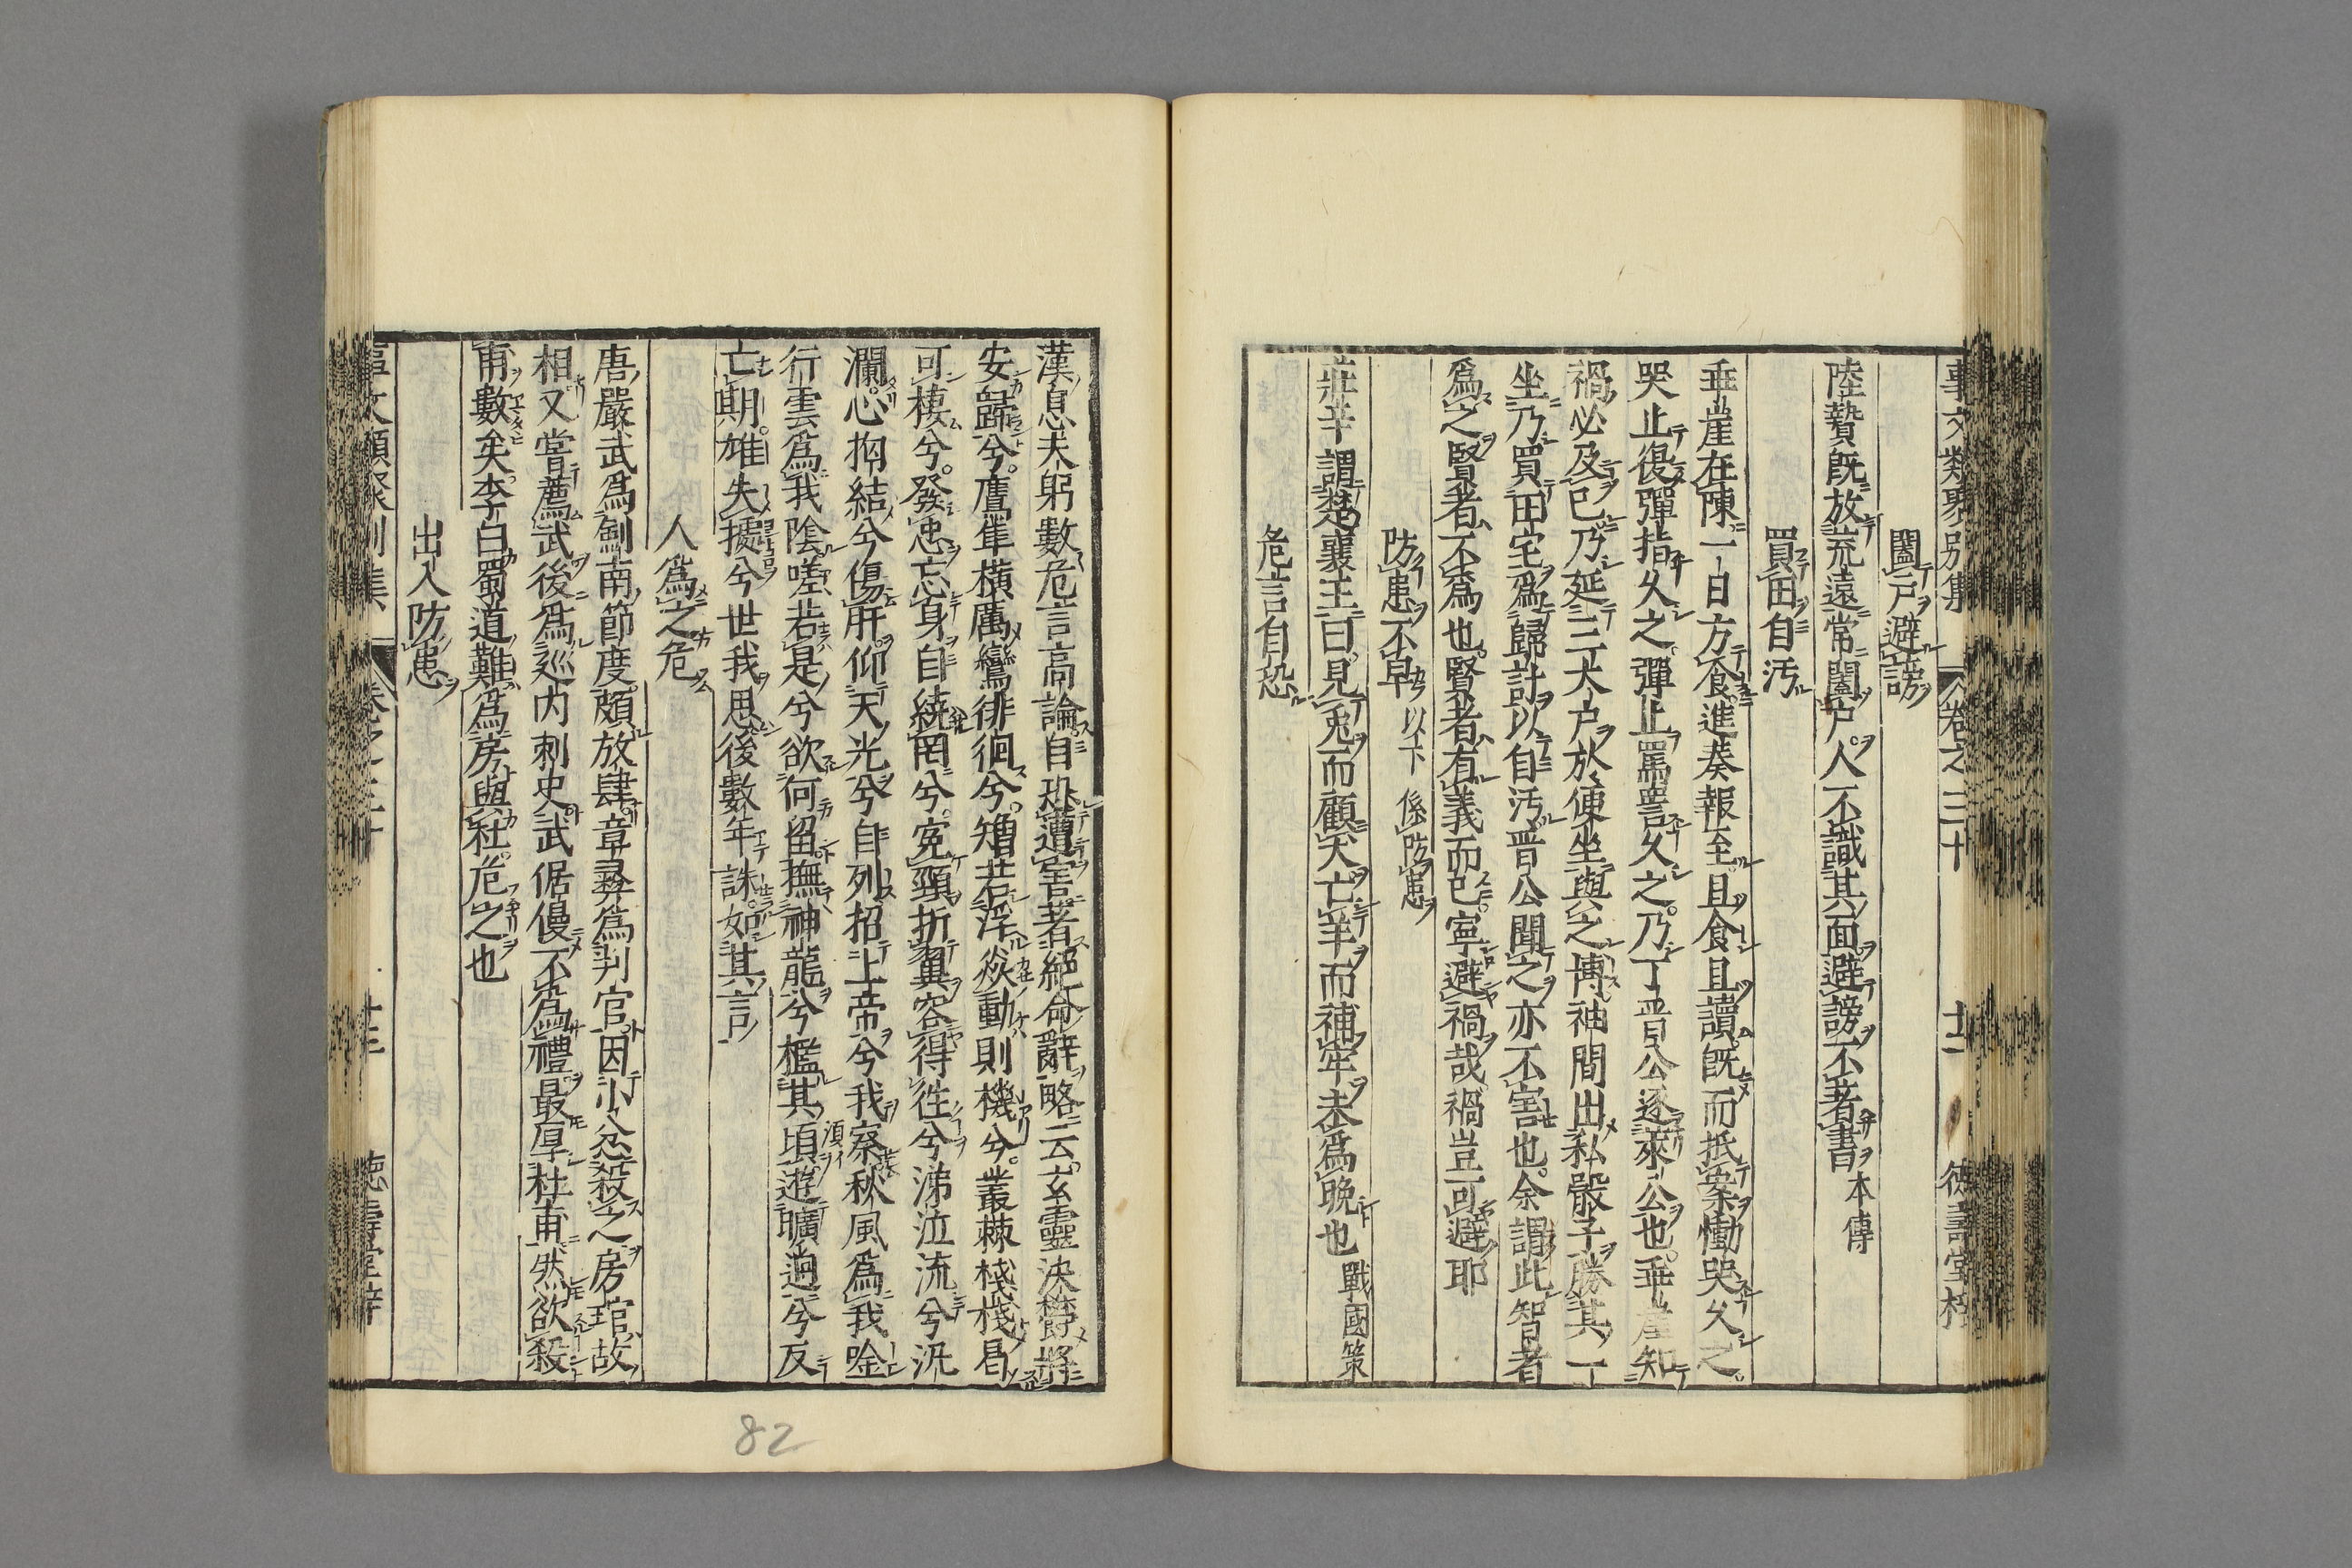 事文類聚別集 卷之三十 十二 德壽堂梓
闔戶避謗
陸贄既放荒遠常闔戶人不識其面避謗不著書 本傳
買田自汚
垂崖在陳一日方食進奏報至且食且讀既而抵案慟哭久之
哭止復彈指久之彈止罵詈久之乃丁晋公逐萊公也垂崖知
禍必及己乃延三大戶於便坐與之博袖間出私骰子勝其一
坐乃買田宅爲歸計以自汚晋公聞之亦不害也余謂此智者
爲之賢者不爲也賢者有義而已寧避禍哉禍豈可避耶
防患不早 以下係防患
莊辛謂楚襄王曰見兎而顧犬亡羊而補牢未爲晩也 戰國策
危言自恐
漢息夫躬數危言高論自恐遭害著絕命辭略云玄靈泱欝將
安歸兮鷹隼橫厲鸞徘徊兮矰若浮焱動則機兮叢棘棧棧曷
可棲兮發忠忘身自繞罔兮寃頸折翼容得徃兮涕泣流兮汍
瀾心抅結兮傷肝仰天光兮自列招上帝兮我察秋風爲我唫
行雲爲我陰嗟若是兮欲何留撫神龍兮檻其頃遊曠逈兮反
亡期雄失據兮世我思後數年誅如其言
人爲之危
唐嚴武爲劍南節度頗放肆章彝爲判官因小忿殺之房琯故
相又嘗薦武後爲巡内刺史武倨慢不爲禮最厚杜甫然欲殺
甫數矣李白蜀道難爲房與杜危之也
出入防患
事文類聚別集 卷之三十 十三 德壽堂梓
82